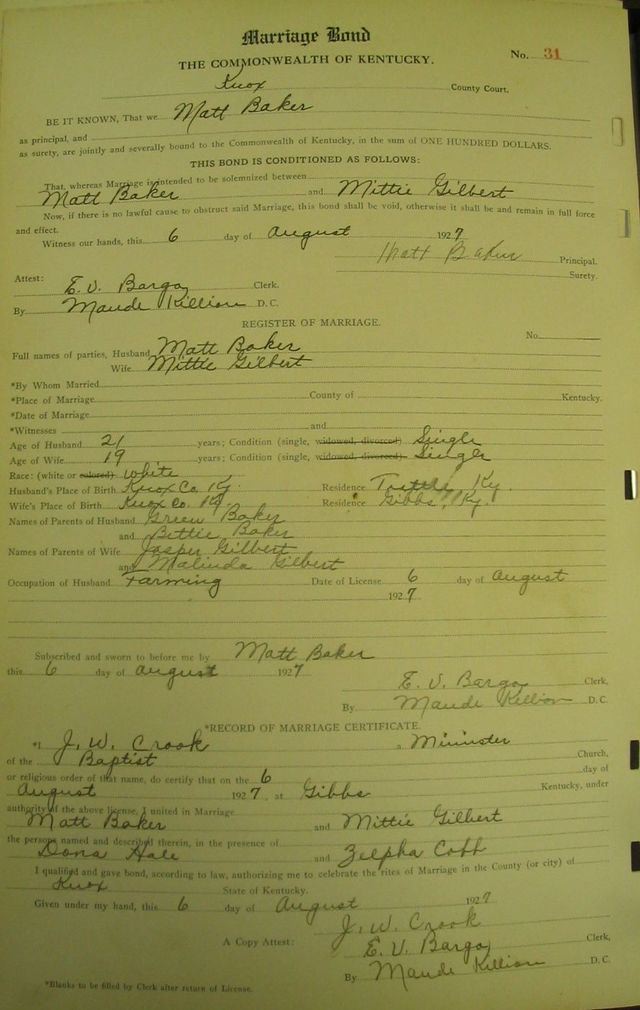 Marriage Bond
THE COMMONWEALTH OF KENTUCKY.
No. 31
Knox County Court.
BE IT KNOWN, That we Matt Baker
as principal, and
as surety, are jointly and severally bound to the Commonwealth of Kentucky, in the sum of ONE HUNDRED DOLLARS.
THIS BOND IS CONDITIONED AS FOLLOWS:
That, whereas Marriage is intended to be solemnized between
Matt Baker and Mittie Gilbert
Now, if there is no lawful cause to obstruct said Marriage, this bond shall be void, otherwise it shall be and remain in full force
and effect.
Witness our hands, this 6 day of August 1927
Matt Baker Principal.
Surety.
Attest:
E. V. Bargo Clerk.
By Maude Killion D. C.
REGISTER OF MARRIAGE.
No.
Full names of parties, Husband Matt Baker
Wife Mittie Gilbert
*By Whom Married
*Place of Marriage County of Kentucky.
*Date of Marriage
*Witnesses and
Age of Husband 21 years; Condition (single, widowed, divorced) Single
Age of Wife 19 years; Condition (single, widowed, divorced) Single
Race: (white or colored) white
Husband's Place of Birth Knox Co Ky. Residence Ky.
Wife's Place of Birth Knox Co. Ky. Residence Gibbs, Ky.
Names of Parents of Husband Green Baker
and Bettie Baker
Names of Parents of Wife Jasper Gilbert
and Malinda Gilbert
Occupation of Husband Farming Date of License 6 day of August
1927
Subscribed and sworn to before me by Matt Baker
this 6 day of August 1927
E. V. Bargo Clerk,
By Maude Killion D. C.
*RECORD OF MARRIAGE CERTIFICATE.
*I J. W. Crook a Minister
of the Baptist Church,
or religious order of that name, do certify that on the 6 day of
August 1927, at Gibbs Kentucky, under
authority of the above license, I united in Marriage
Matt Baker and Mittie Gilbert
the persons named and described therein, in the presence of
Dona Hale and Zelpha Cobb
I qualified and gave bond, according to law, authorizing me to celebrate the rites of Marriage in the County (or city) of
Knox State of Kentucky.
Given under my hand, this 6 day of August 1927
J. W. Crook
A Copy Attest: E. V. Bargo Clerk,
By Maude Killion D. C.
*Blanks to be filled by Clerk after return of License.